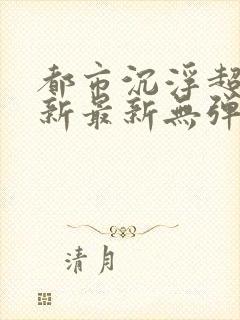 都市沉浮超
新最新無彈
清月